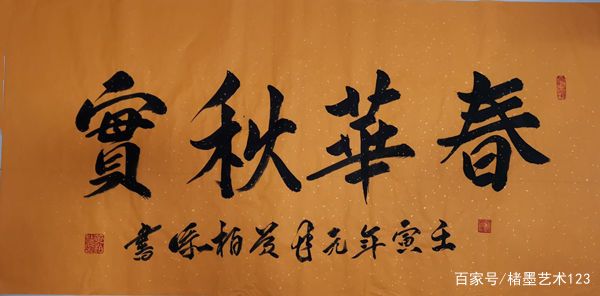 春華秋實
壬寅年元月黄柏書
百家号/楮墨艺术123